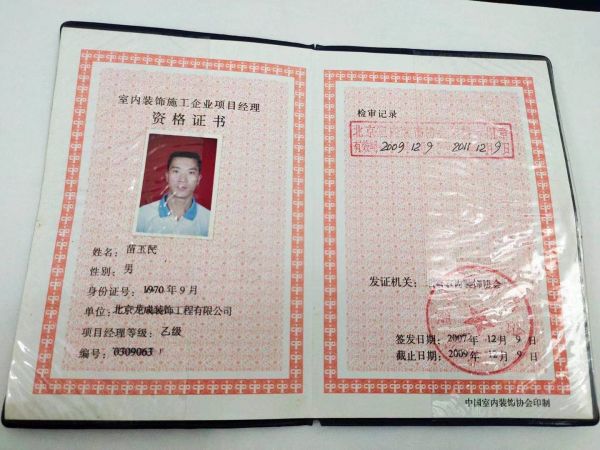 室内装饰施工企业项目经理
资格证书
姓名：苗玉民
性别：男
身份证号：1970年9月
单位：北京龙成装饰工程有限公司
项目经理等级：乙级
编号：0309063
检审记录
北京室内装饰协
有效期 2009 12 9 2011 12 9日
发证机关：
签发日期：2007年12月9日
截止日期：2009年12月9日
中国室内装饰协会印制